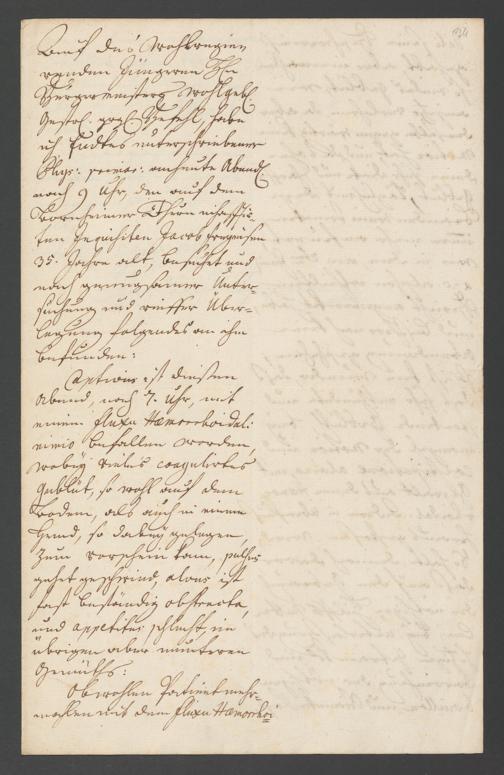 134
Auf des Wohlregie-
renden Jüngeren Hn
Burgermeisters Wohlgeb.
Gestr. Befehl, habe
ich Endes unterschriebener
Phys: primar: anheute Abend
nach 9 Uhr, den auf dem
Bornheimer Thurn
ten Inquisiten Jacob
35. Jahre alt, besuchet und
nach genugsamer Unter-
suchung und reiffer Über-
legung folgendes an ihm
befunden:
Captivus ist diesen
Abend, nach 7. Uhr, mit
einem fluxu Hæmorrhoidali
nimio befallen worden,
wobey vieles coagulirtes
Geblüt, so wohl auf dem
Boden, als auch in einem
Hemd, so dabey gelegen,
zum vorschein kam, pulsus
gehet geschwind, alvus ist
fast beständig obstructa,
und appetitus schlecht, im
übrigen aber munteren
Gemüths:
Obwohlen Patient mehr-
mahlen mit dem fluxu Hæmorrhoi-